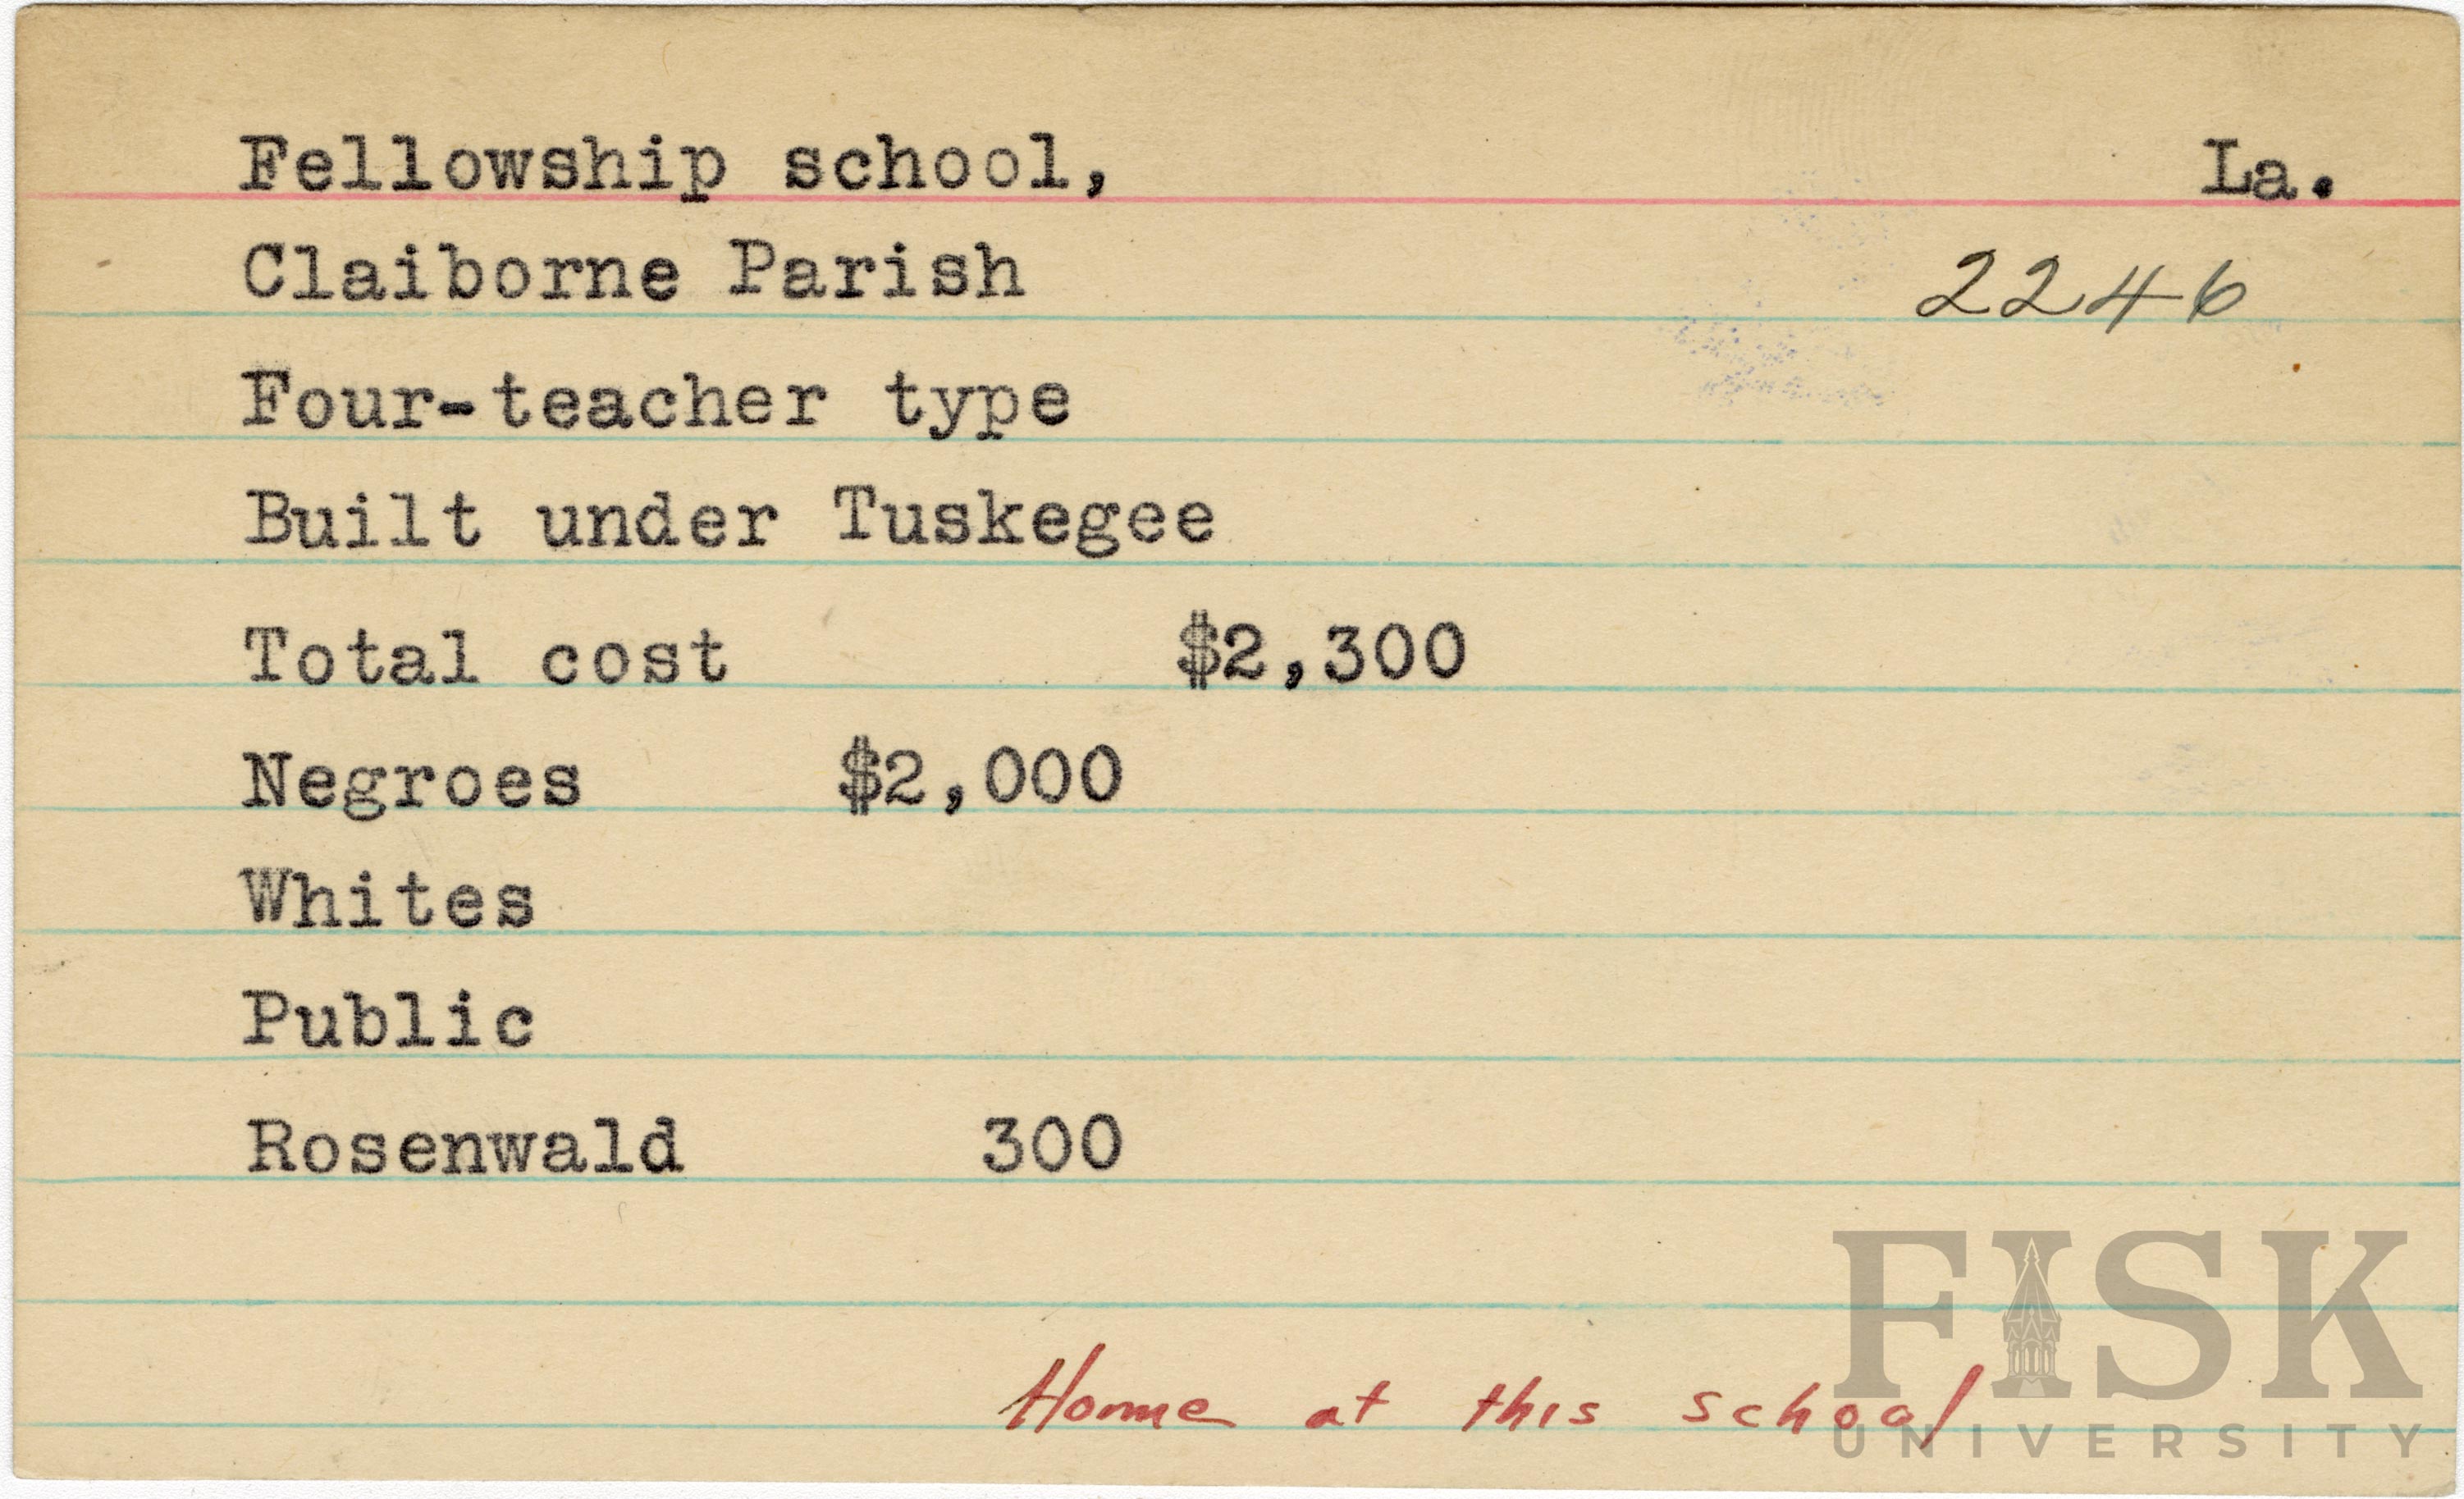 Fellowship school, La.
Claiborne Parish 2246
Four-teacher type
Built under Tuskegee
Total cost $2,300
Negroes $2,000
Whites
Public
Rosenwald 300
Home at this school
FISK
UNIVERSITY